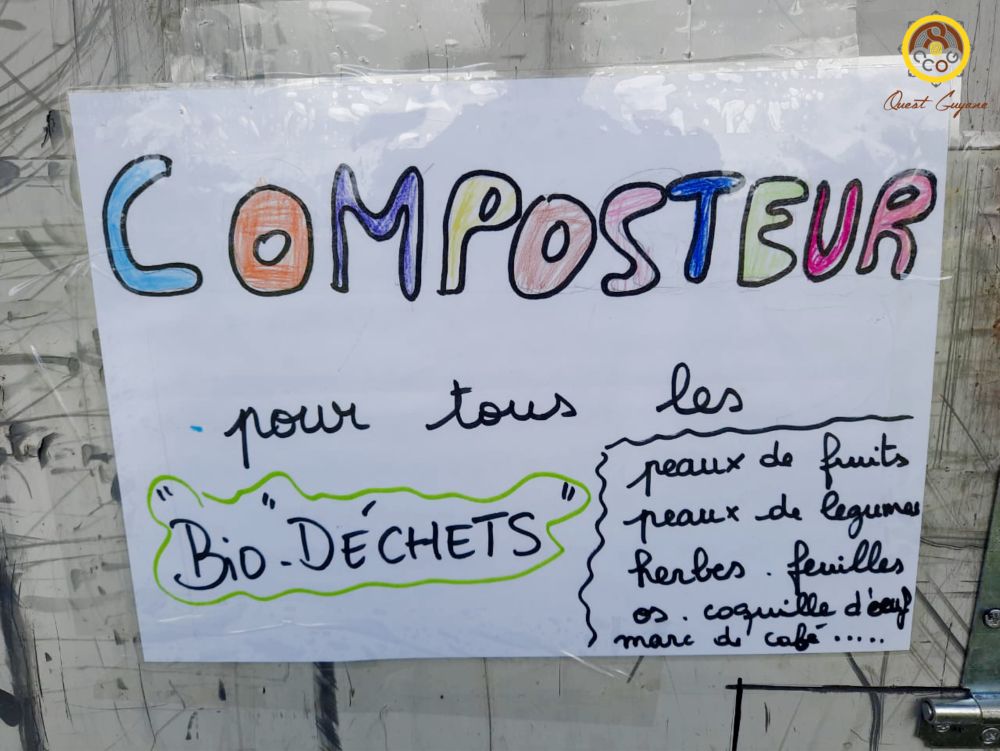 CCOG
Ouest Guyane
COMPOSTEUR
pour tous les
"Bio-DÉCHETS"
peaux de fruits
peaux de légumes
herbes. feuilles
os. coquille d'œuf
marc de café.....